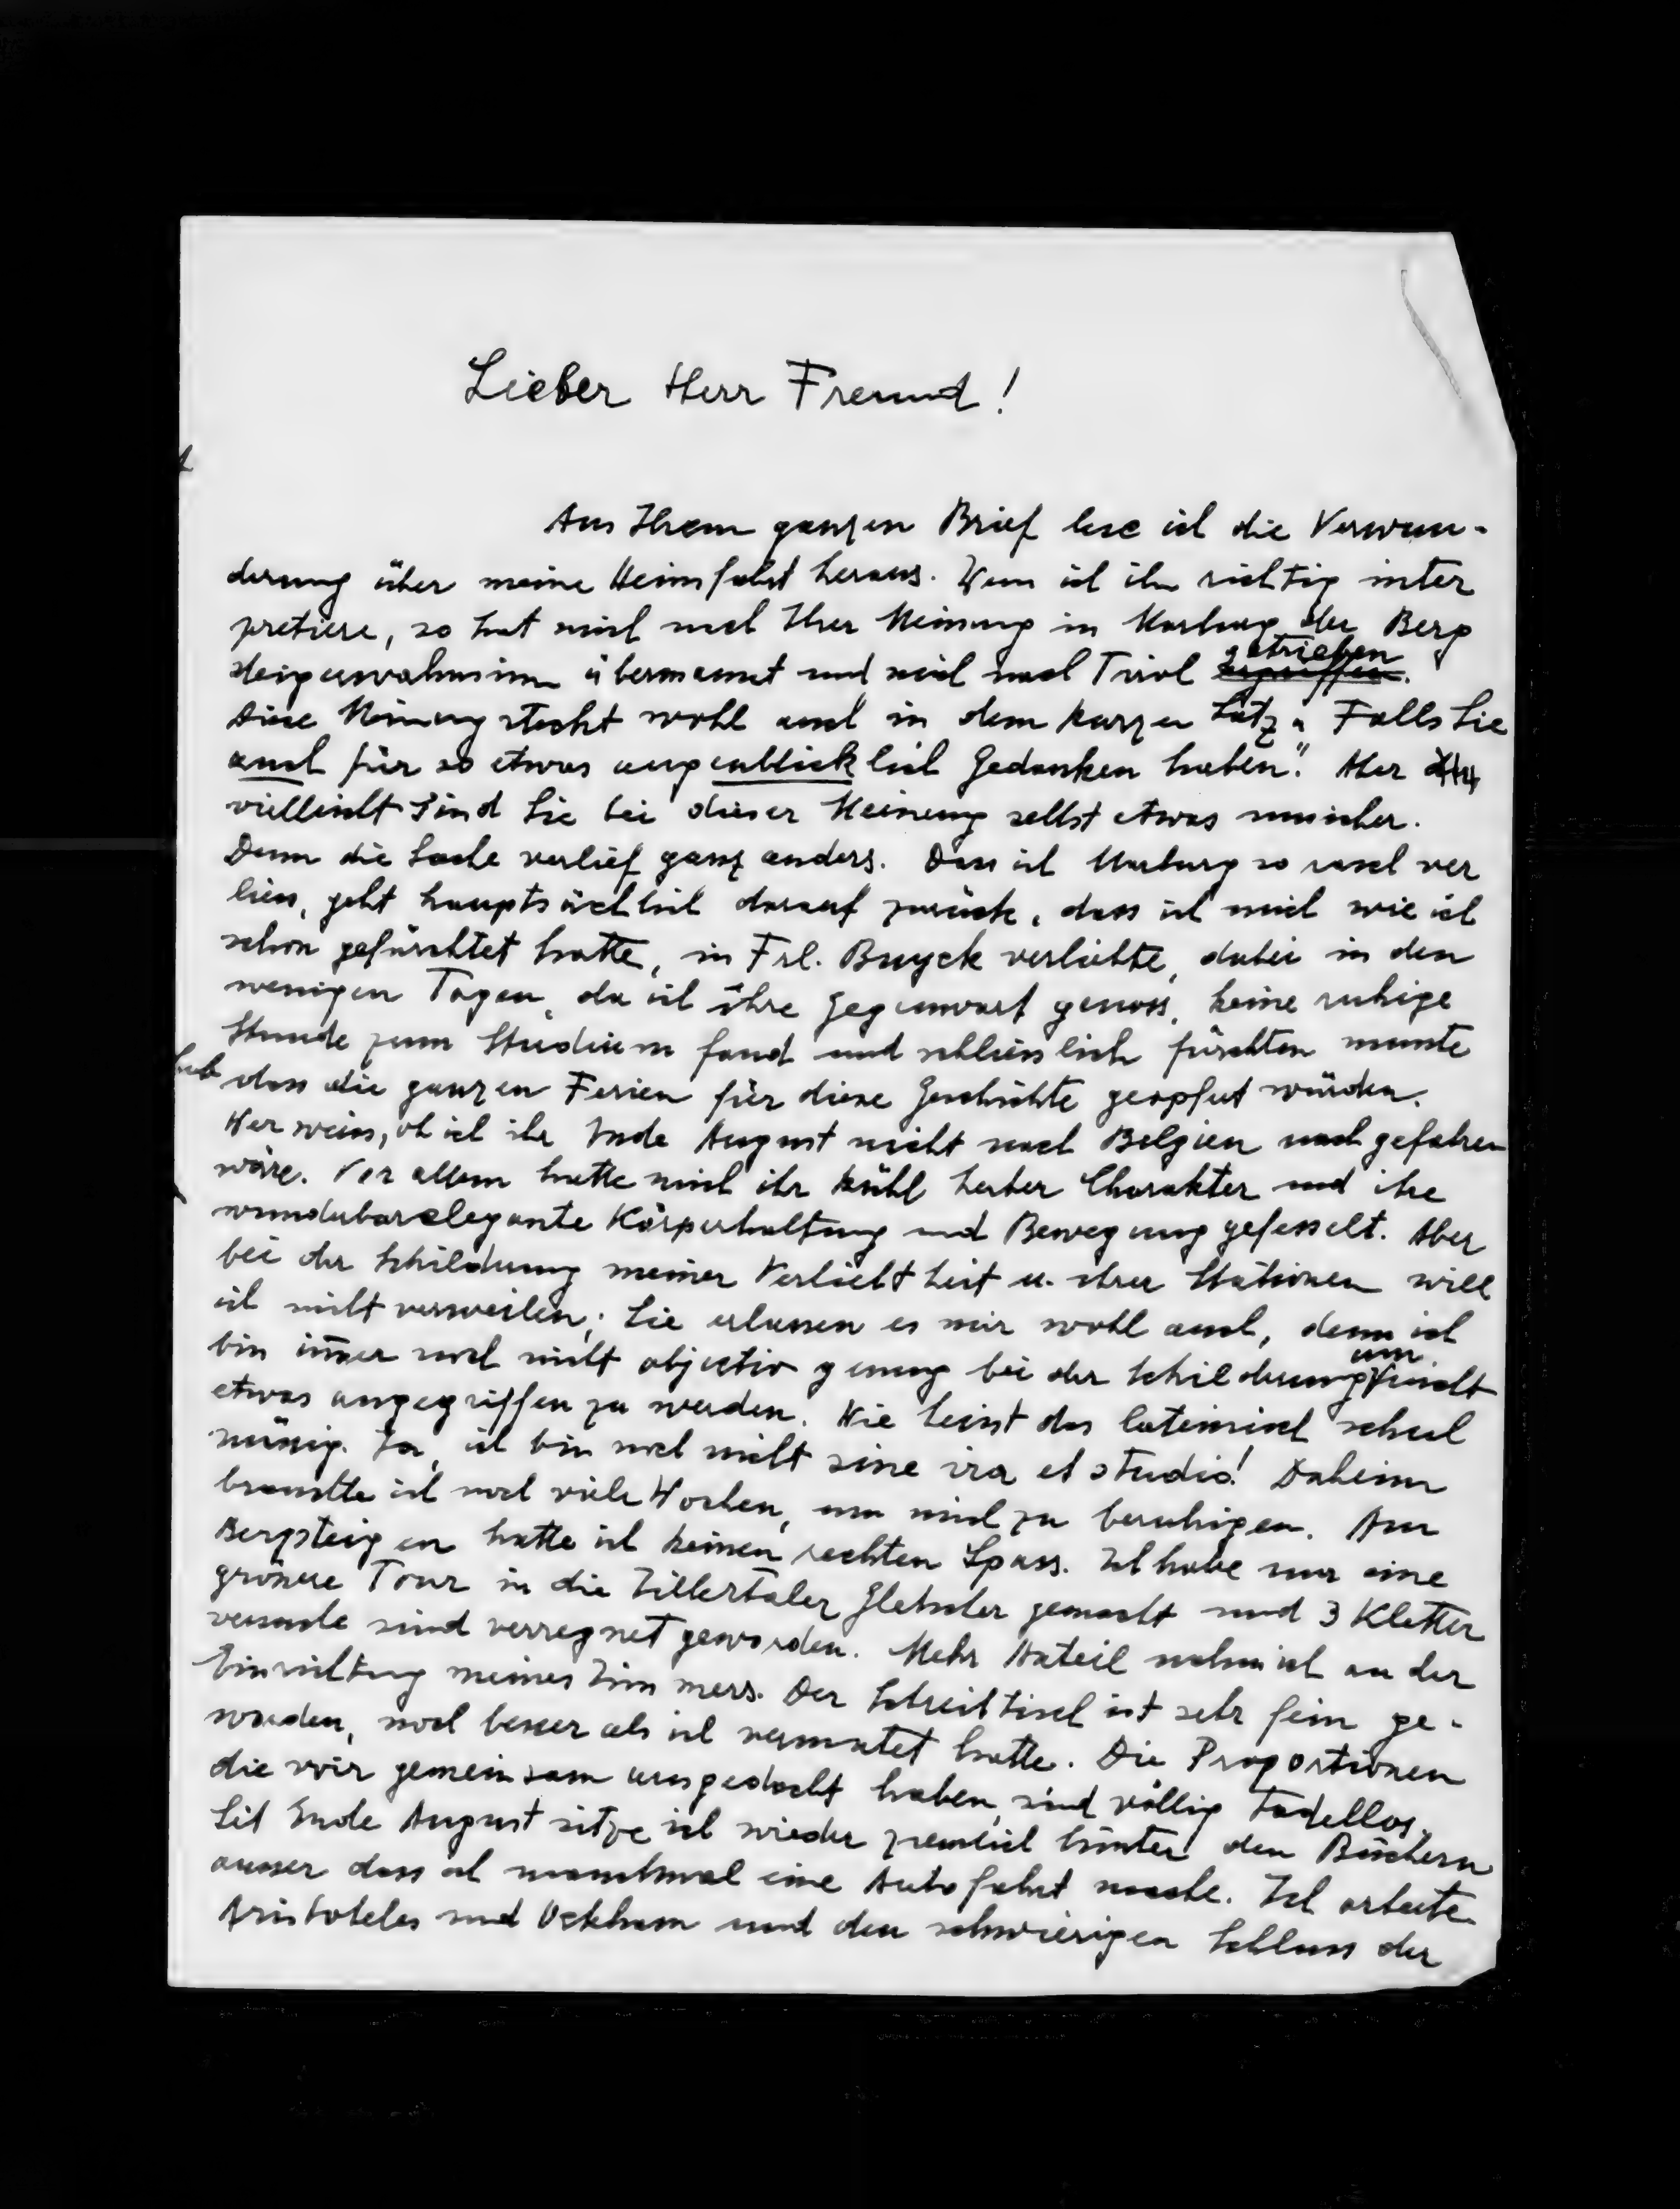 Lieber Herr Freund!
Aus Ihrem ganzen Brief lese ich die Verwun-
derung über meine Heimfahrt heraus. Wenn ich ihn richtig inter
pretiere, so hat mich nach Ihrer Meinung in Marburg der Berg
steigerwahnsinn übermannt und mich nach Tirol getrieben.
Diese Meinung steckt wohl auch in dem kurzen Satz "Falls Sie
auch für so etwas augenblicklich Gedanken haben". Aber
vielleicht sind Sie bei dieser Meinung selbst etwas unsicher.
Denn die Sache verlief ganz anders. Dass ich Marburg so rasch ver
liess, geht hauptsächlich darauf zurück, dass ich mich wie ich
schon gefürchtet hatte, in Frl. Buyck verliebte, dabei in den
wenigen Tagen, da ich ihre Gegenwart genoss, keine ruhige
Stunde zum Studieren fand und schliesslich fürchten musste
dass die ganzen Ferien für diese Geschichte geopfert würden.
Wer weiss, ob ich ihr Ende August nicht nach Belgien nachgefahren
wäre. Vor allem hatte mich ihr kühl herber Charakter und ihre
wunderbar elegante Körperhaltung und Bewegung gefesselt. Aber
bei der Schilderung meiner Verliebtheit u. ihrer Stationen will
ich nicht verweilen; Sie erlassen es mir wohl auch, denn ich
bin immer noch nicht objectiv genug bei der Schilderung um nicht
etwas angegriffen zu werden. Wie heisst das lateinisch schul
mässig. Ja, ich bin noch nicht sine ira et studio! Daheim
brauchte ich noch viele Wochen, um mich zu beruhigen. Am
Bergsteigen hatte ich keinen rechten Spass. Ich habe nur eine
grössere Tour in die Zillertaler Gletscher gemacht und 3 Kletter
versuche sind verregnet geworden. Mehr Anteil nahm ich an der
Einrichtung meines Zimmers. Der Schreibtisch ist sehr fein ge-
worden, noch besser als ich vermutet hatte. Die Proportionen
die wir gemeinsam ausgedacht haben, sind völlig tadellos.
Seit Ende August sitze ich wieder ziemlich hinter den Büchern
ausser dass ich manchmal eine Autofahrt mache. Ich arbeite
Aristoteles und Ockham und den schwierigen Schluss der